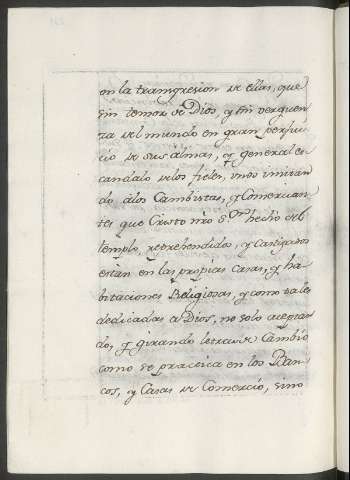 en la transgresion de ellas, que
sin temor de Dios, y sin verguen
za del mundo en gran perjui
cio de sus almas, y general es
candalo delos fieles, unos imitan
do álos Cambistas, y Comercian
tes que Cristo nro Sr hechó del
templo, reprehendidos, y castigados
estan en las propias casas, y ha
bitaciones Religiosas, y como tales
dedicadas a Dios, no solo aceptan
do, y girando letras de Cambio
como se practica en los Ban
cos, y Casas de Comercio, sino